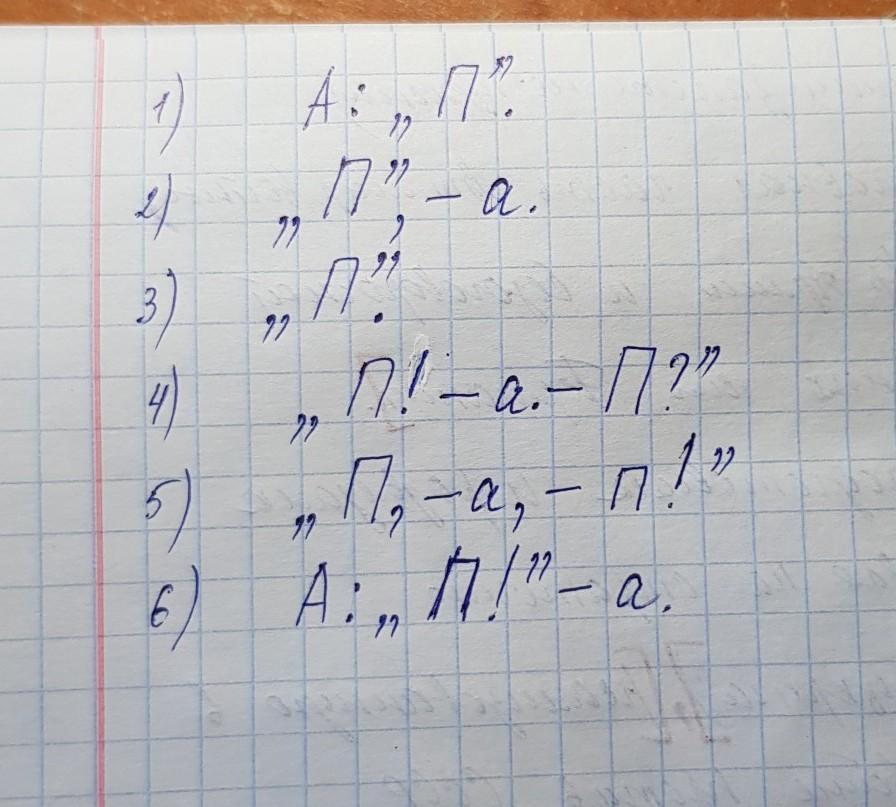 1) А: „П”.
2) „П”, – а.
3) „П.”
4) „П! – а. – П?”
5) „П, – а, – п!”
6) А: „П!” – а.